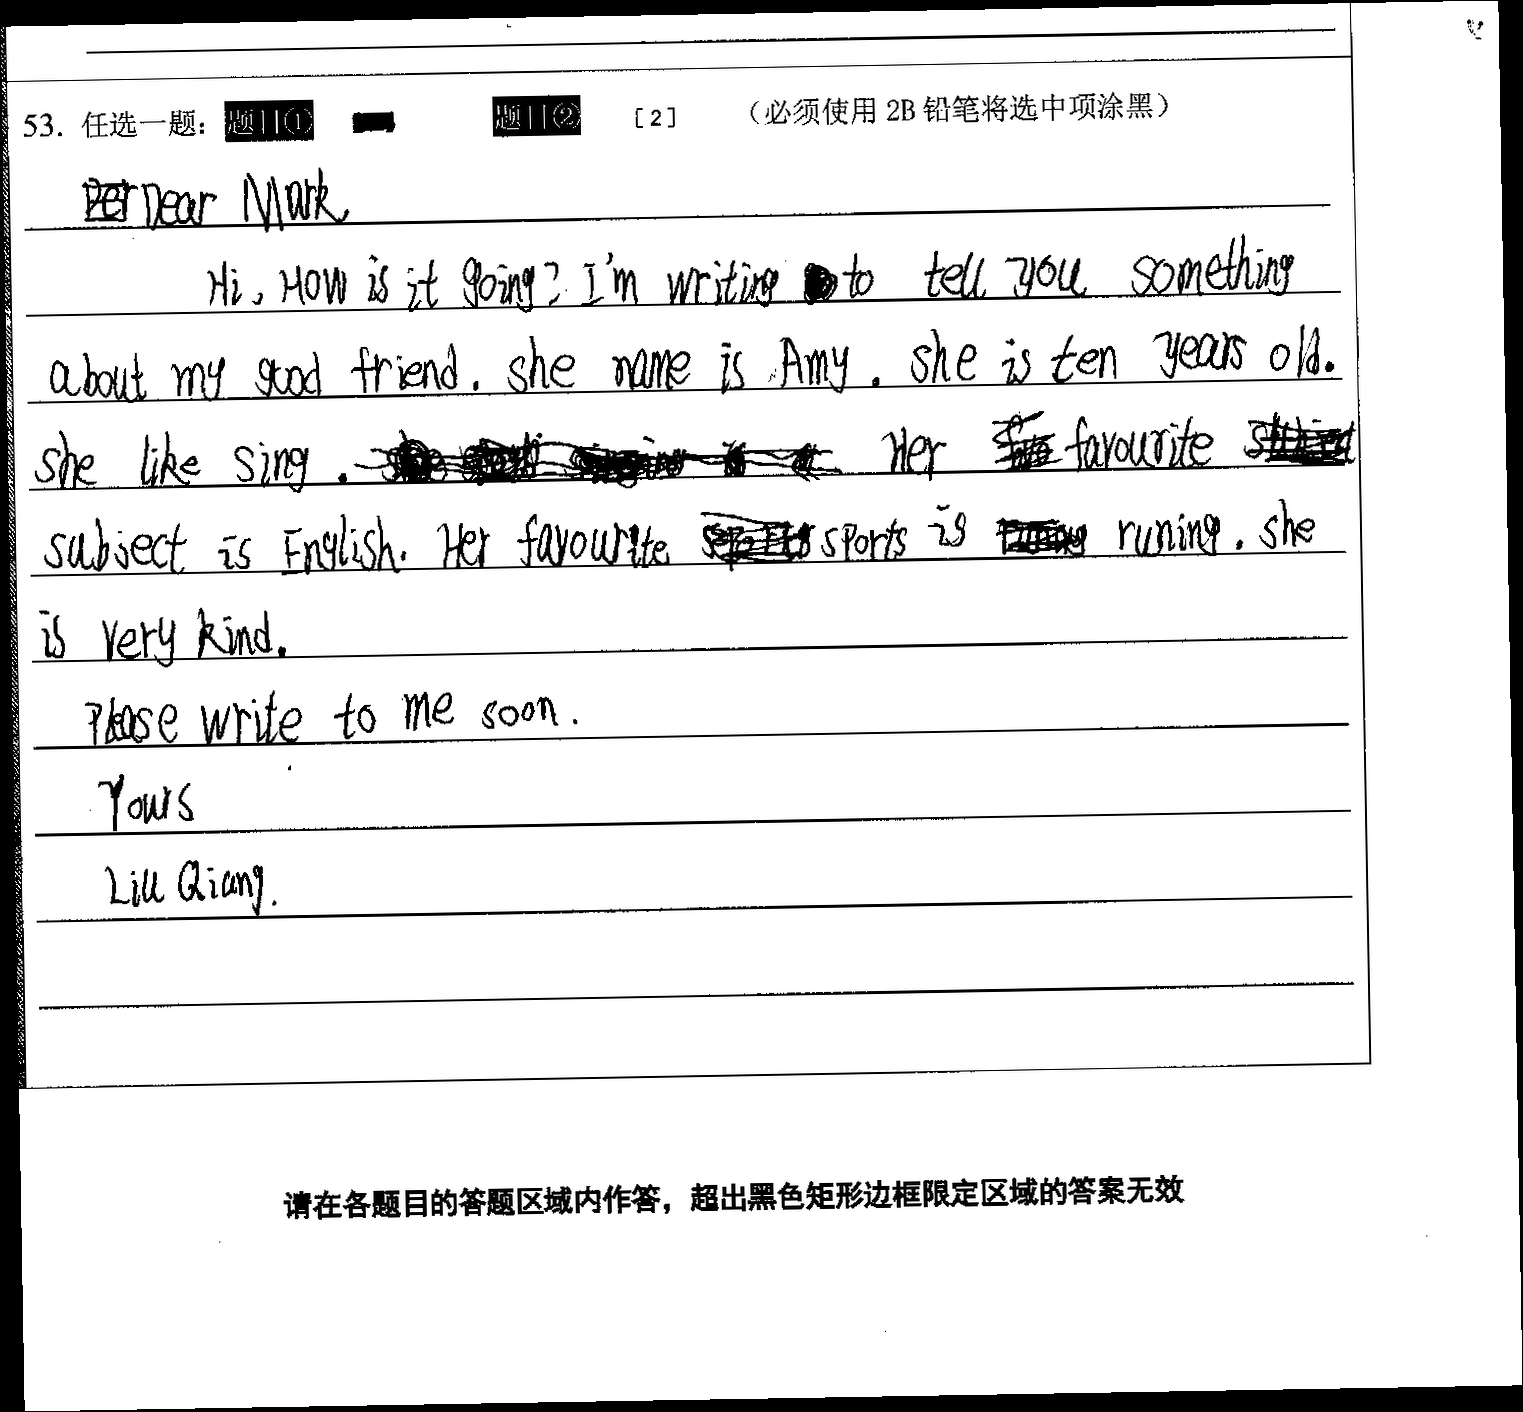 53. 任选一题：题目① 题目② [2] （必须使用 2B 铅笔将选中项涂黑）
Dear Mark,
Hi, How is it going? I'm writing to tell you something
about my good friend. she name is Amy. she is ten years old.
she like sing. Her favourite
subject is English. Her favourite sports is runing. she
is very kind.
Please write to me soon.
Yours
Liu Qiang.
请在各题目的答题区域内作答，超出黑色矩形边框限定区域的答案无效